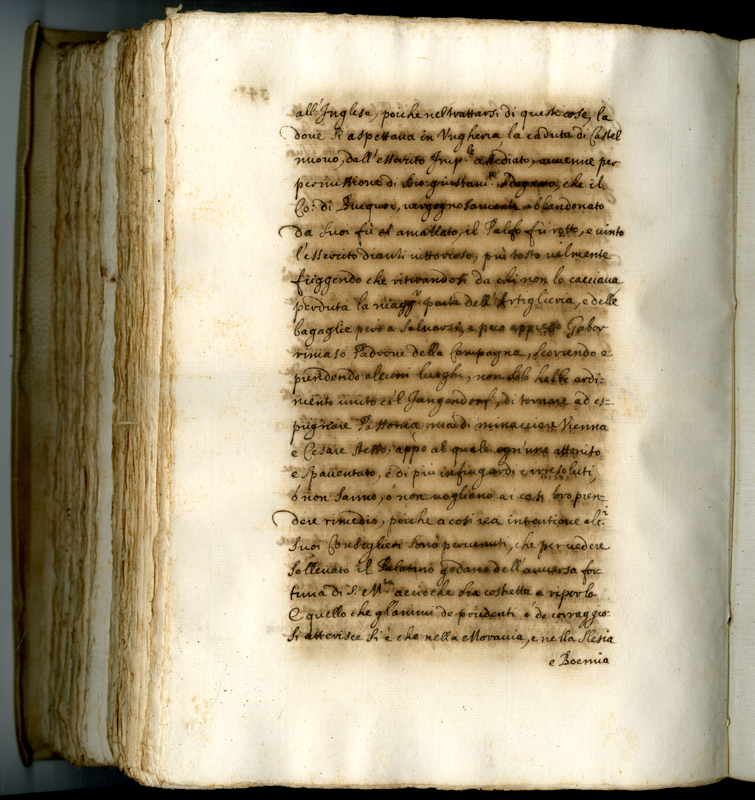 all'Inglese, poiche nel trattarsi di queste cose, la
doue si aspettaua in Vngheria la caduta di Castel
nuouo, dall'essercito Imp.le assediato, auuenne per
permissione di che il
Co: di Bucquoi, uergognosamente abbandonato
da suoi fù et amazzato, il Palfo fù rotto, e uinto
l'essercito dianzi uittorioso, più tosto uilmente
fuggendo che ritirandosi da chi non lo cacciaua
perduta la magg.r parte dell'Artiglieria, e delle
bagaglie però a saluarsi, e poco appresso Gabor
rimaso Padrone della Campagna, scorrendo e
prendendo alcuni luoghi, non solo hebbe ardi=
mento unito co'l Jangendorf, di tornare ad es=
pugnare Possonia, ma di minacciare Vienna
e Cesare stesso, appo al quale ogn'uno attonito
e spauentato, e di più infingardi e irresoluti,
ò non sanno, ò non uogliono ai casi loro pren=
dere rimedio, poiche a così rea intentione alc.i
suoi Consiglieri sono peruenuti, che per uedere
solleuato il Palatino godano dell'auuersa for
tuna di S. M.tà accioche sia costretta a riporlo
E quello che gl'animi de prudenti e de corraggio:
si atterisce si è che nella Morauia, e nella Slesia
e Boemia